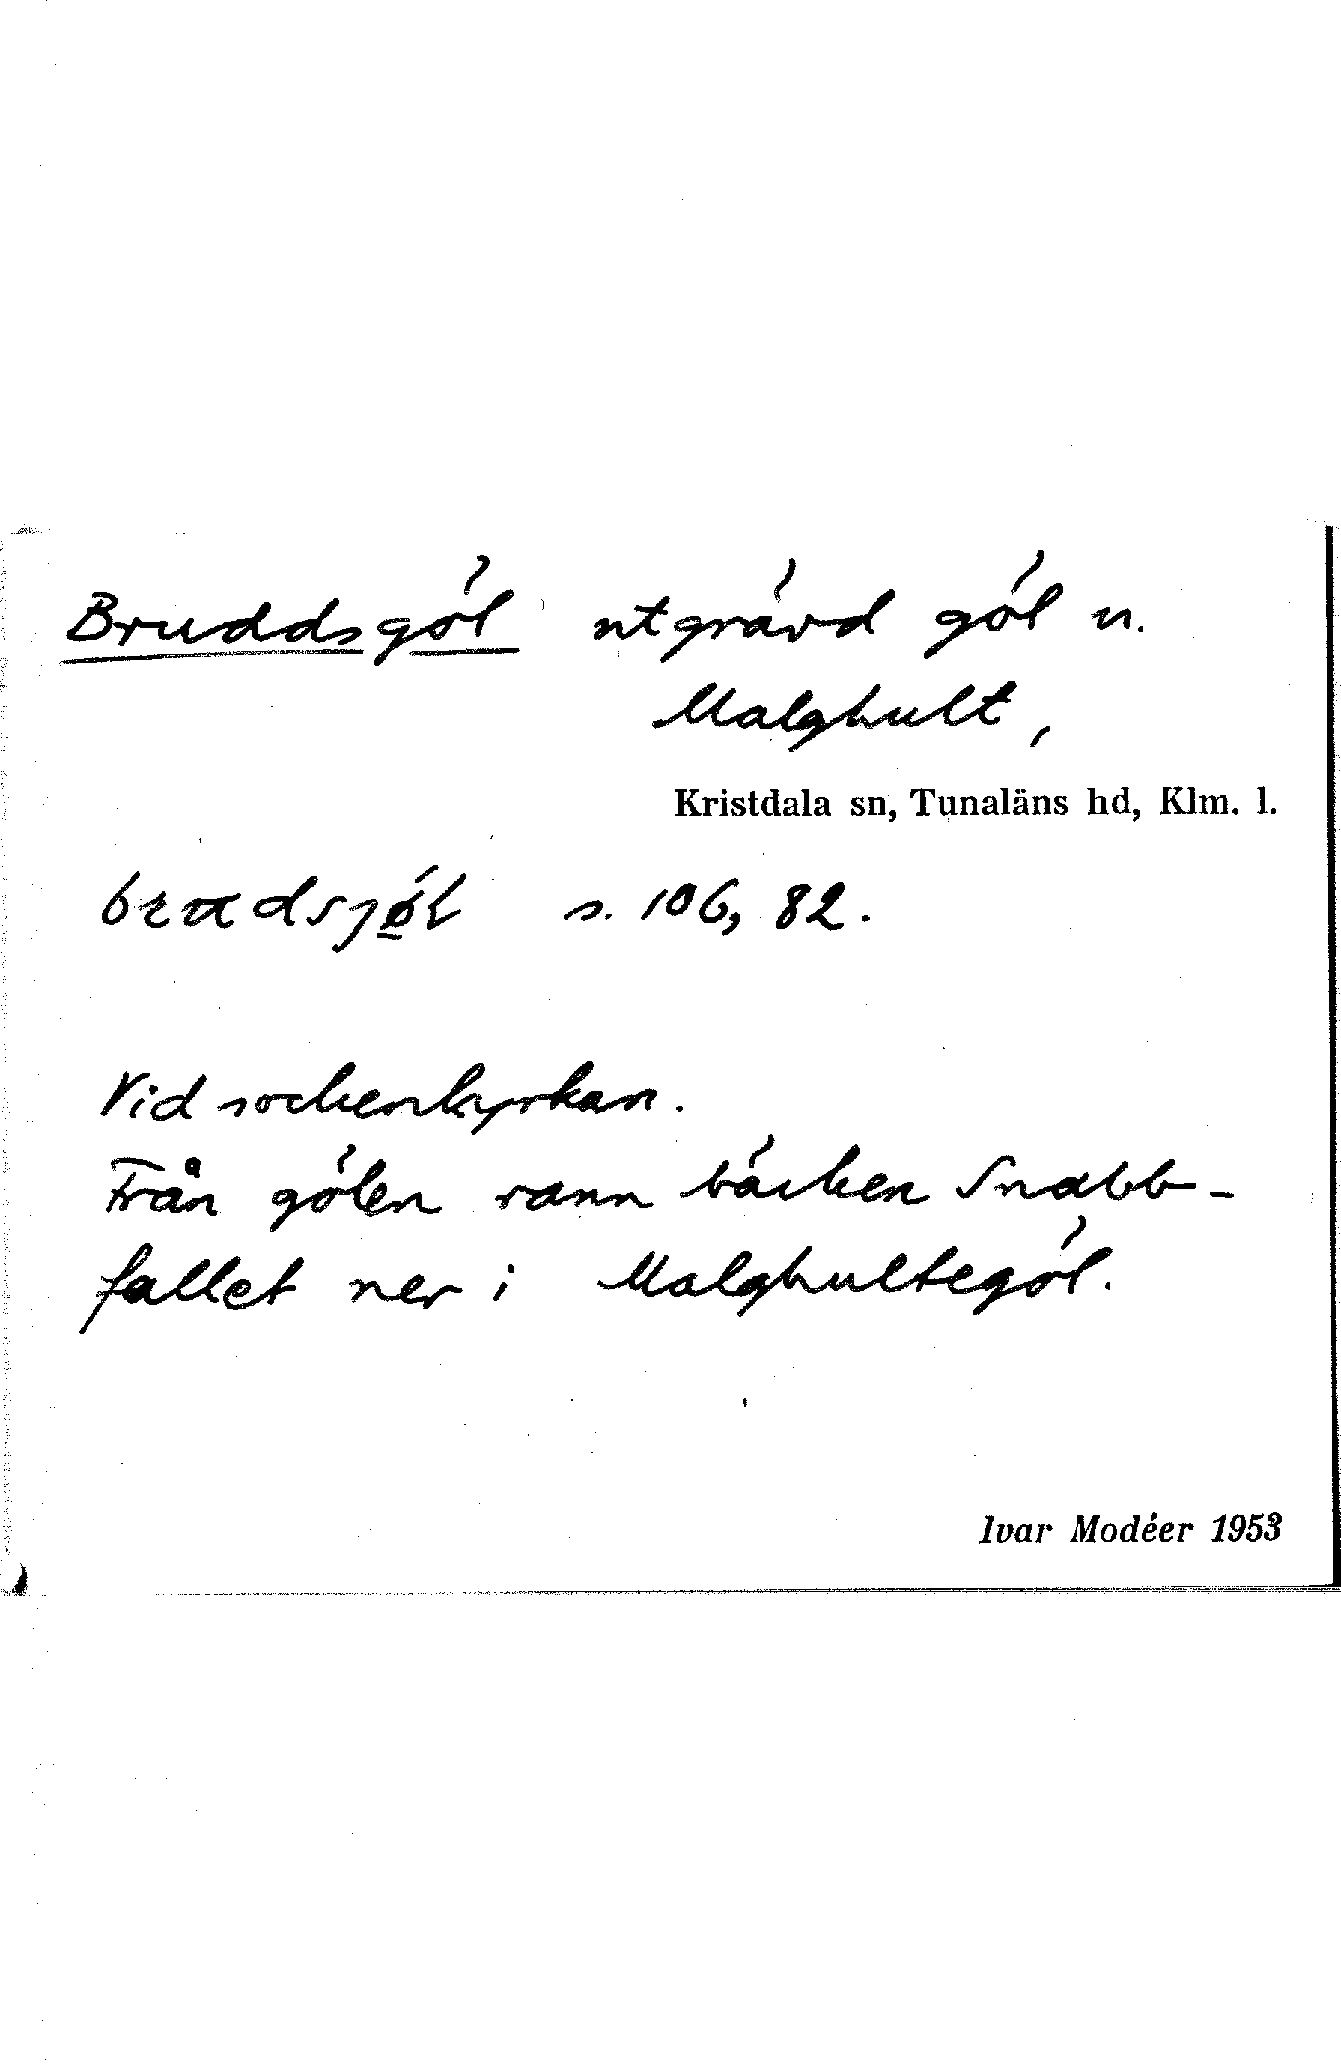 Bruddsgöl utgrävd göl u.
Malghult,
Kristdala sn, Tunaläns hd, Klm. l.
s. 106, 82.
Vid sockenkyrkan.
Från gölen rann bäcken Snabb-
fallet ner i Malghultegöl.
Ivar Modéer 1953